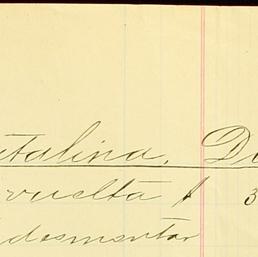 talina. D
vuelta $ 3
desmontar